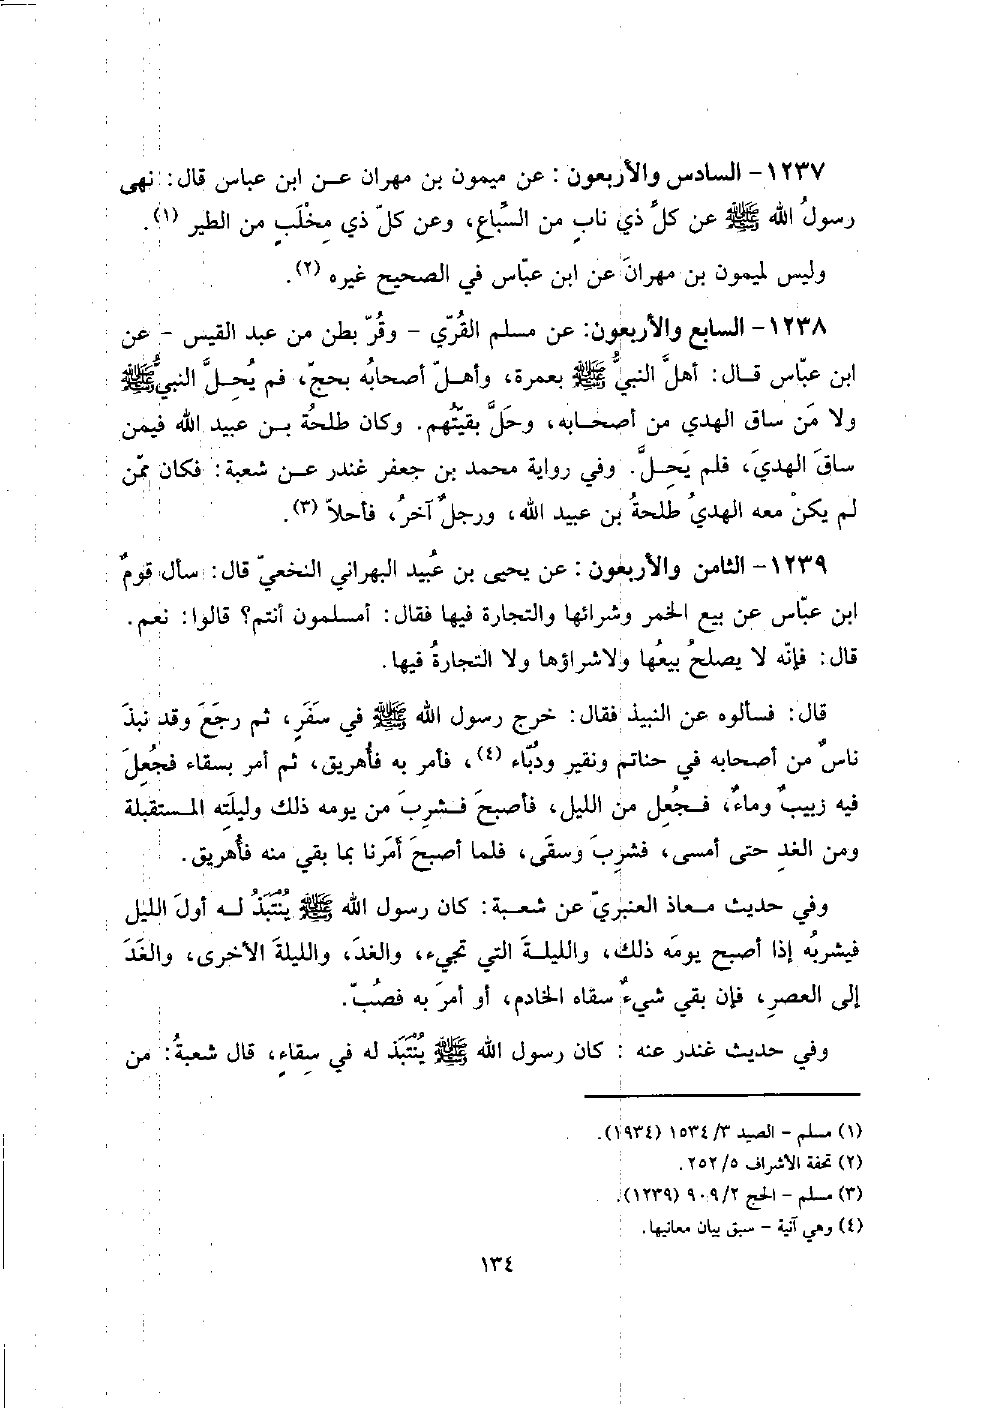 ١٢٣٧- السادس والأربعون : عن ميمون بن مهران عن ابن عباس قال: نهى
رسولُ الله ﷺ عن كلِّ ذي نابٍ من السِّباعِ، وعن كلّ ذي مِخْلَبٍ من الطير (١).
وليس لميمون بن مهرانَ عن ابن عبّاس في الصحيح غيره (٢).
١٢٣٨- السابع والأربعون: عن مسلم القُرّي - وقُرّ بطن من عبد القيس - عن
ابن عبّاس قال: أهلَّ النبيُّ ﷺ بعمرة، وأهلّ أصحابُه بحجّ، فم يُحِلَّ النبيُّ ﷺ
ولا مَن ساق الهدي من أصحابه، وحَلَّ بقيّتُهم. وكان طلحةُ بن عبيد الله فيمن
ساقَ الهديَ، فلم يَحِلَّ. وفي رواية محمد بن جعفر غندر عن شعبة: فكان ممّن
لم يكنْ معه الهديُ طلحةُ بن عبيد الله، ورجلٌ آخرُ، فأحلاّ (٣).
١٢٣٩- الثامن والأربعون : عن يحيى بن عُبيد البهراني النخعيّ قال: سأل قومٌ
ابن عبّاس عن بيع الخمر وشرائها والتجارة فيها فقال: أمسلمون أنتم؟ قالوا: نعم.
قال: فإنّه لا يصلحُ بيعُها ولاشراؤها ولا التجارةُ فيها.
قال: فسألوه عن النبيذ فقال: خرج رسول الله ﷺ في سفَرٍ، ثم رجَعَ وقد نبذَ
ناسٌ من أصحابه في حناتم ونقير ودُبّاء (٤)، فأمر به فأُهريق، ثم أمر بسقاء فجُعِلَ
فيه زبيبٌ وماءٌ، فجُعل من الليل، فأصبحَ فشرِبَ من يومه ذلك وليلَتِه المستقبلة
ومن الغدِ حتى أمسى، فشرِبَ وسقَى، فلما أصبحَ أمَرنا بما بقي منه فأُهريق.
وفي حديث معاذ العنبريّ عن شعبة: كان رسول الله ﷺ يُنْتَبَذُ له أولَ الليل
فيشربُه إذا أصبح يومَه ذلك، والليلةَ التي تجيء، والغدَ، والليلةَ الأخرى، والغَدَ
إلى العصرِ، فإن بقي شيءٌ سقاه الخادم، أو أمرَ به فصُبّ.
وفي حديث غندر عنه : كان رسول الله ﷺ يُنْتَبَذ له في سِقاءٍ، قال شعبةُ: من
(١) مسلم - الصيد ١٥٣٤/٣ (١٩٣٤).
(٢) تحفة الأشراف ٢٥٢/٥.
(٣) مسلم - الحج ٩٠٩/٢ (١٢٣٩).
(٤) وهي آنية - سبق بيان معانيها.
١٣٤